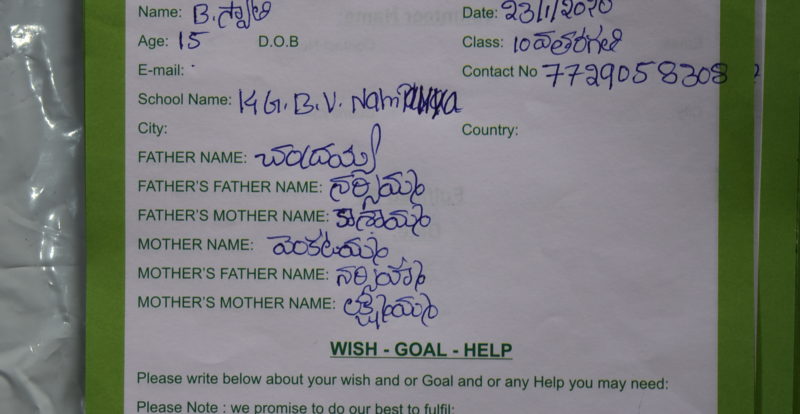 Name: B. స్వాతి Date: 23/1/2020
Age: 15 D.O.B Class: 10వతరగతి
E-mail: Contact No 7729058308
School Name: K.G.B.V.
City: Country:
FATHER NAME: చంద్రయ్య
FATHER'S FATHER NAME: నర్సయ్య
FATHER'S MOTHER NAME:
MOTHER NAME: వెంకటమ్మ
MOTHER'S FATHER NAME: నర్సింహ
MOTHER'S MOTHER NAME: లక్ష్మమ్మ
WISH - GOAL - HELP
Please write below about your wish and or Goal and or any Help you may need:
Please Note : we promise to do our best to fulfil: